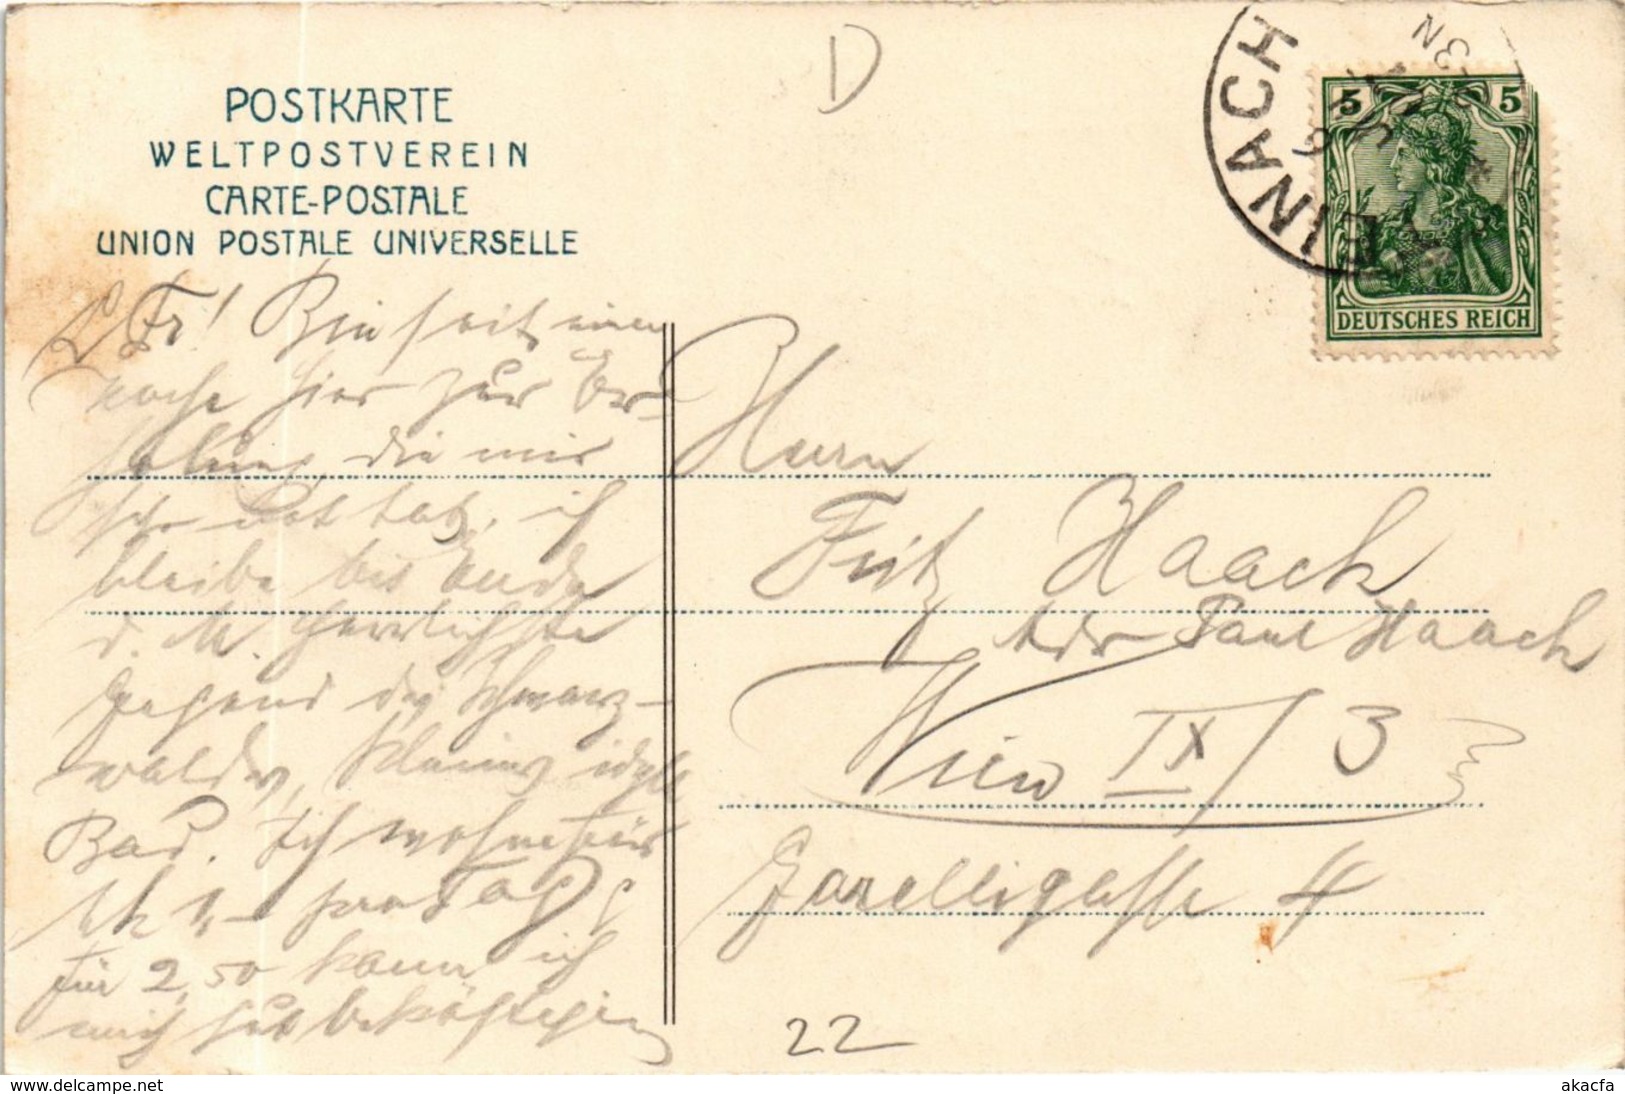 POSTKARTE
WELTPOSTVEREIN
CARTE-POSTALE
UNION POSTALE UNIVERSELLE
D
EINACH
6 JU
3N
5 5
DEUTSCHES REICH
L. Fr! Bin seit einer
Woche hier zur Er-
holung, die mir
sehr Not tat, ich
bleibe bis Ende
d. M. Herrlichste
Gegend des Schwarz-
waldes, kleines idyll.
Bad. Ich wohne für
Mk 1,- pro Tag,
für 2,50 kann ich
mich gut beköstigen
Herrn
Fritz Haack
Adr Paul Haack
Wien IX/3
Garelligasse 4
22
www.delcampe.net
akacfa